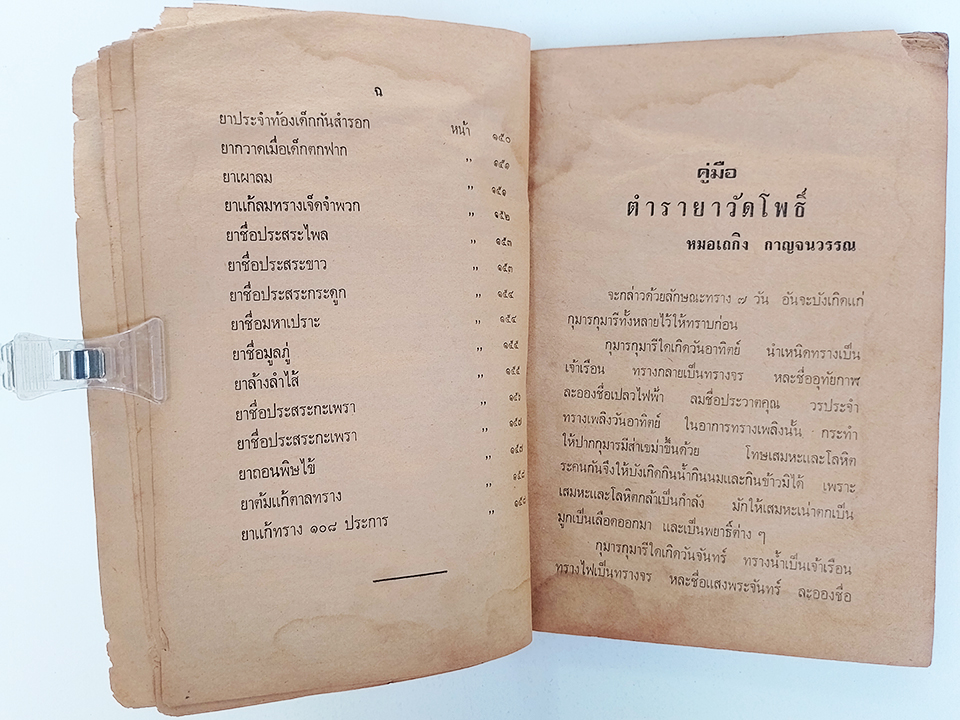 ฉ
ยาประจำท้องเด็กกันสำรอก หน้า ๑๕๐
ยากวาดเมื่อเด็กตกฟาก " ๑๕๑
ยาเผาลม " ๑๕๑
ยาแก้ลมทรางเจ็ดจำพวก " ๑๕๒
ยาชื่อประสระไพล " ๑๕๓
ยาชื่อประสระขาว " ๑๕๓
ยาชื่อประสระกระดูก " ๑๕๔
ยาชื่อมหาเปราะ " ๑๕๔
ยาชื่อมูลภู่ " ๑๕๕
ยาล้างลำไส้ " ๑๕๕
ยาชื่อประสระกะเพรา " ๑๕๖
ยาชื่อประสระกะเพรา " ๑๕๗
ยาถอนพิษไข้ " ๑๕๗
ยาต้มแก้ตาลทราง " ๑๕๘
ยาแก้ทราง ๑๐๘ ประการ " ๑๕๘
คู่มือ
ตำรายาวัดโพธิ์
หมอเถกิง กาญจนวรรณ
จะกล่าวด้วยลักษณะทราง ๗ วัน อันจะบังเกิดแก่
กุมารกุมารีทั้งหลายไว้ให้ทราบก่อน
กุมารกุมารีใดเกิดวันอาทิตย์ นำเหนิดทรางเป็น
เจ้าเรือน ทรางกลายเป็นทรางจร หละชื่ออุทัยกาฬ
ละอองชื่อเปลวไฟฟ้า ลมชื่อประวาตคุณ วรประจำ
ทรางเพลิงวันอาทิตย์ ในอาการทรางเพลิงนั้น กระทำ
ให้ปากกุมารมีส่าเขม่าขึ้นด้วย โทษเสมหะและโลหิต
ระคนกันจึงให้บังเกิดกินน้ำกินนมและกินข้าวมิได้ เพราะ
เสมหะและโลหิตกล้าเป็นกำลัง มักให้เสมหะเน่าตกเป็น
มูกเป็นเลือดออกมา และเป็นพยาธิ์ต่าง ๆ
กุมารกุมารีใดเกิดวันจันทร์ ทรางน้ำเป็นเจ้าเรือน
ทรางไฟเป็นทรางจร หละชื่อแสงพระจันทร์ ละอองชื่อ